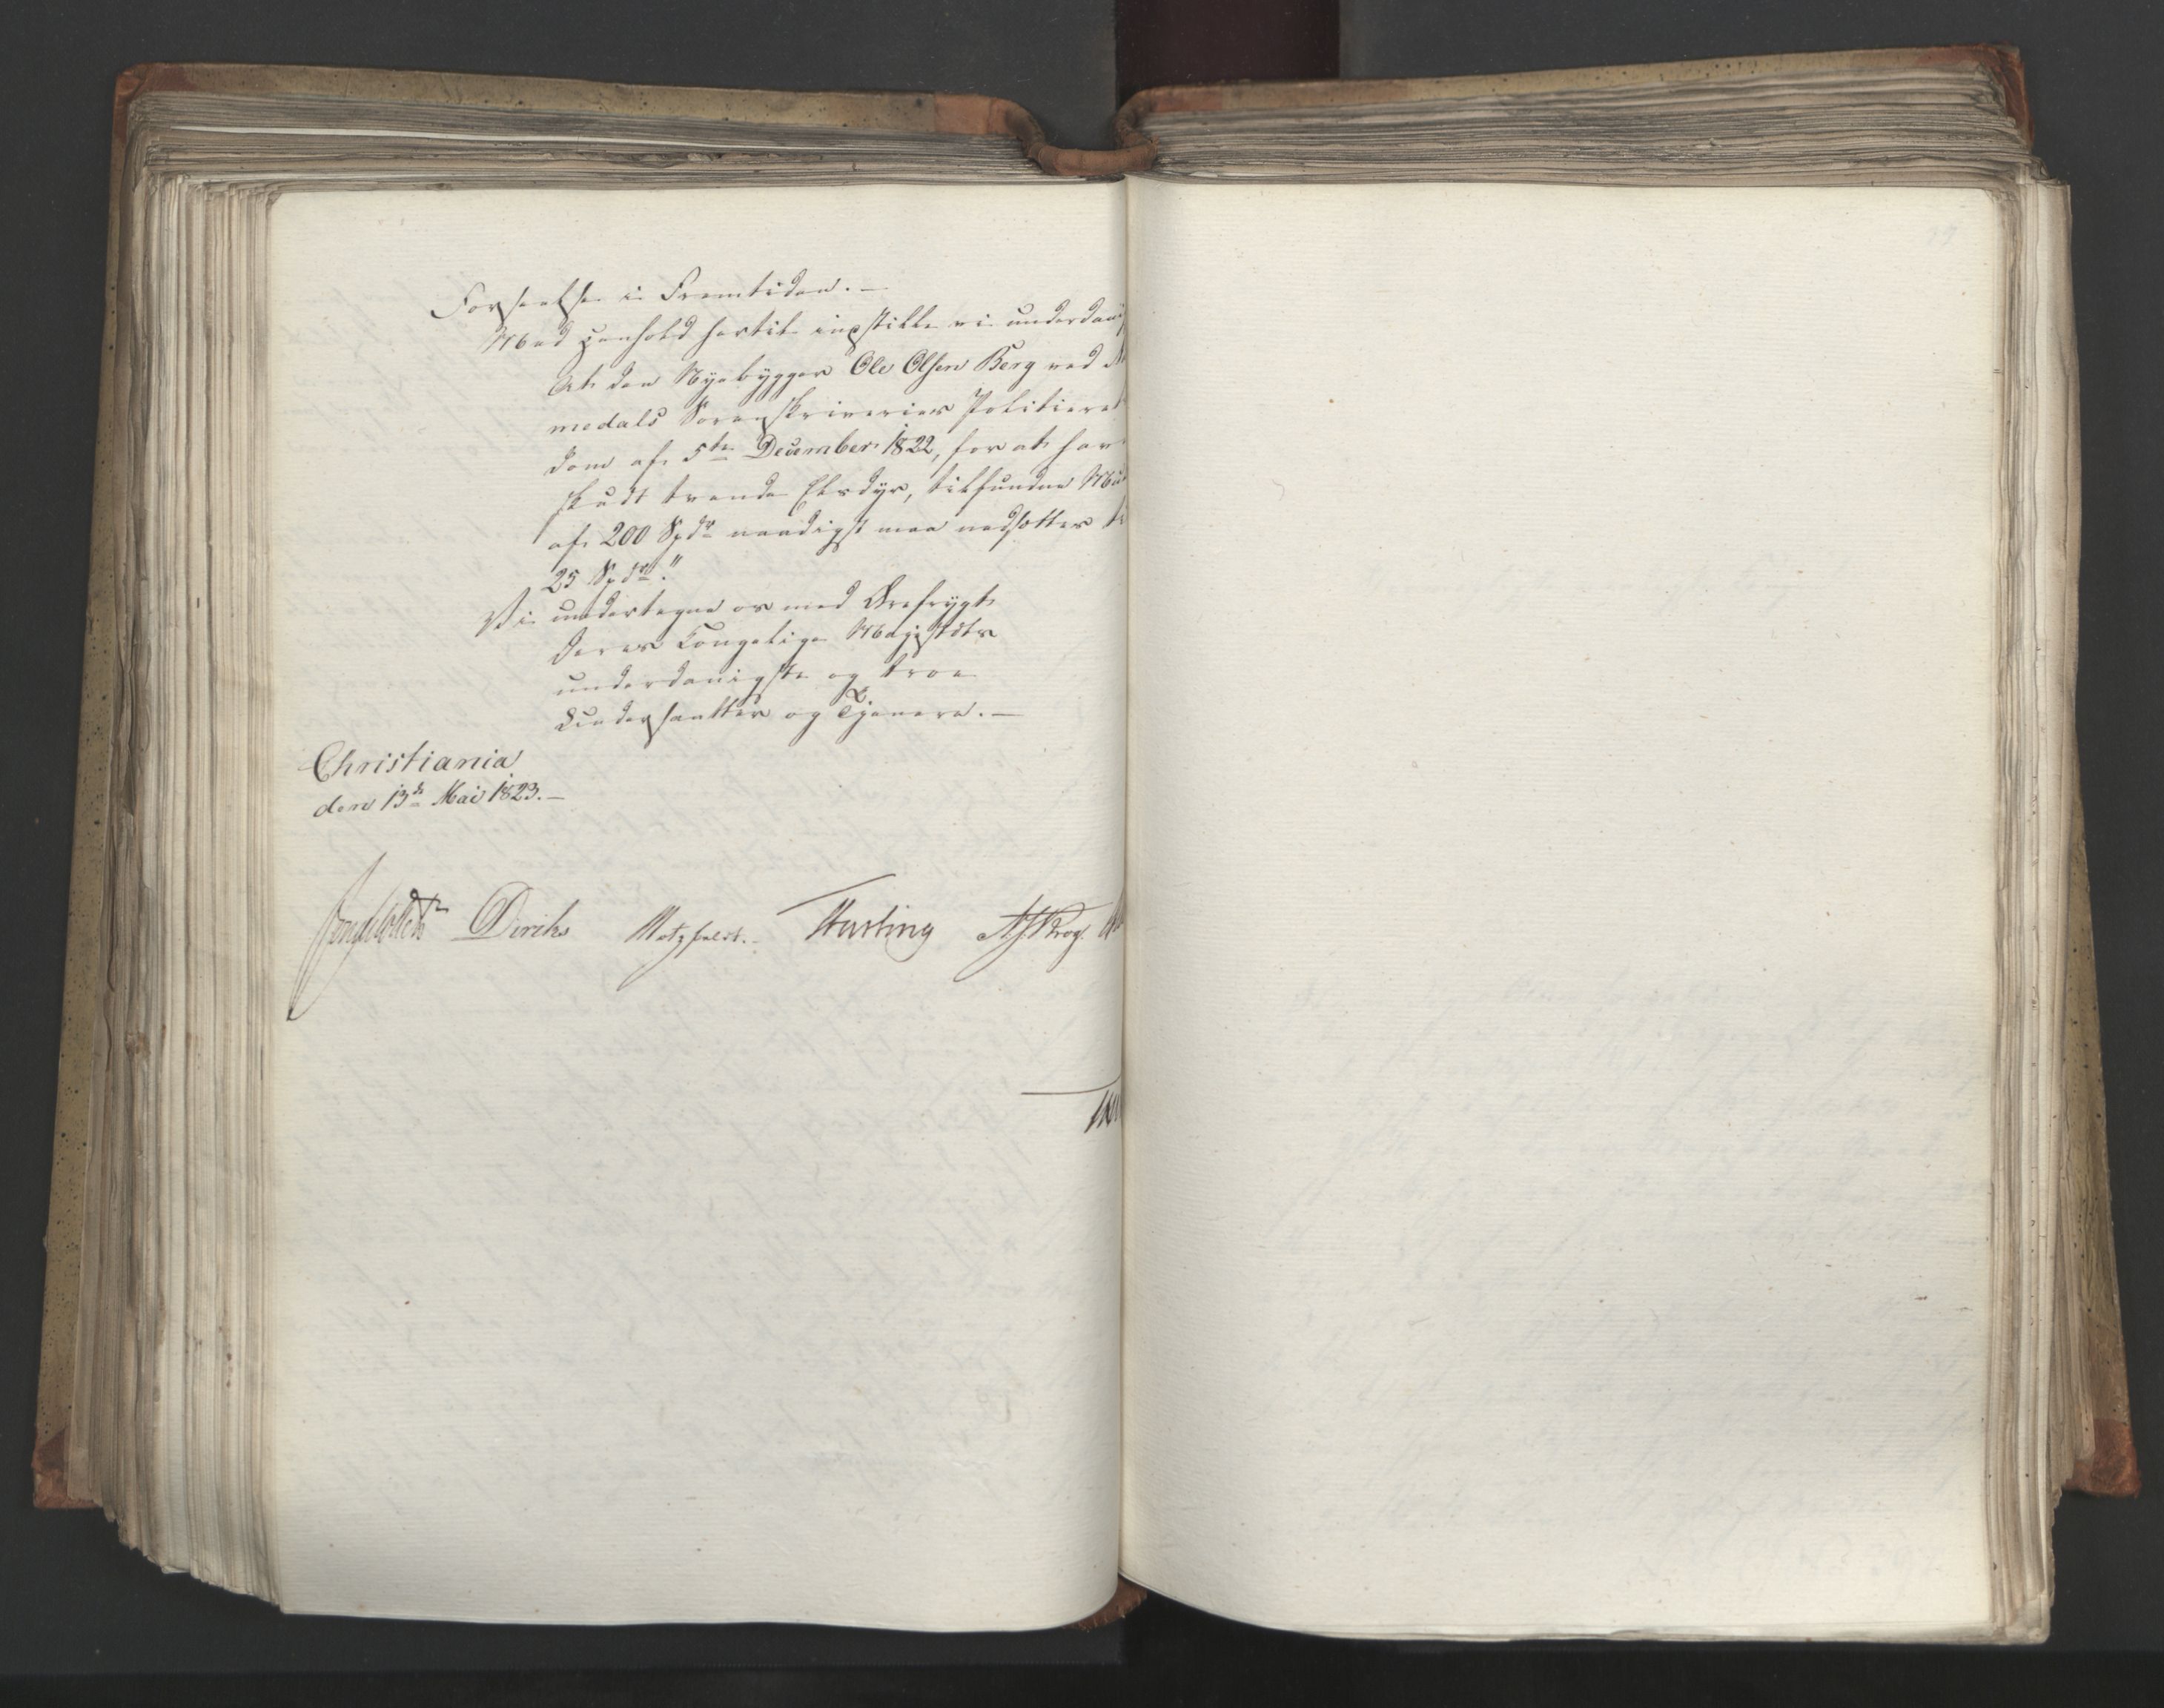 Forseelse i Fremtiden. —
Med Henhold hertil indstille vi underdan
At den Nyebygger Ole Olsen Berg ved
medals Sorenskriveries Politieret
dom af 5te December 1822, for at hav
skudt trende Elsdyr, tilfundne
af 200 Spdr naadigst maa nedsættes
25 Spdr."
Vi undertegne os med Ærefrygt
Deres Kongelige Majestæts
underdanigste og troe
Undersaatter og Tjenere. —
Christiania
den 13de Mai 1823. —
Jonas Collett Diriks Motzfeldt. Hurting A.J. Krog.